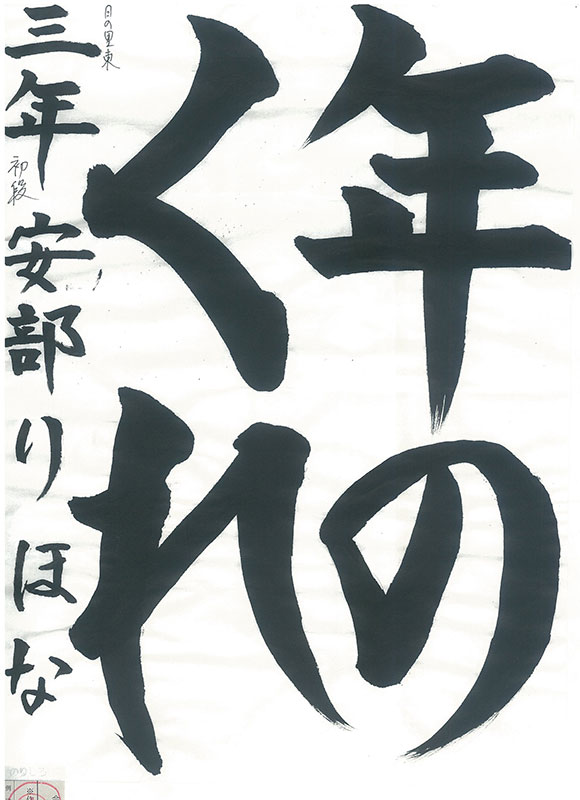 年の
くれ
日の里東
三年 安部りほな
初段
のりしろ